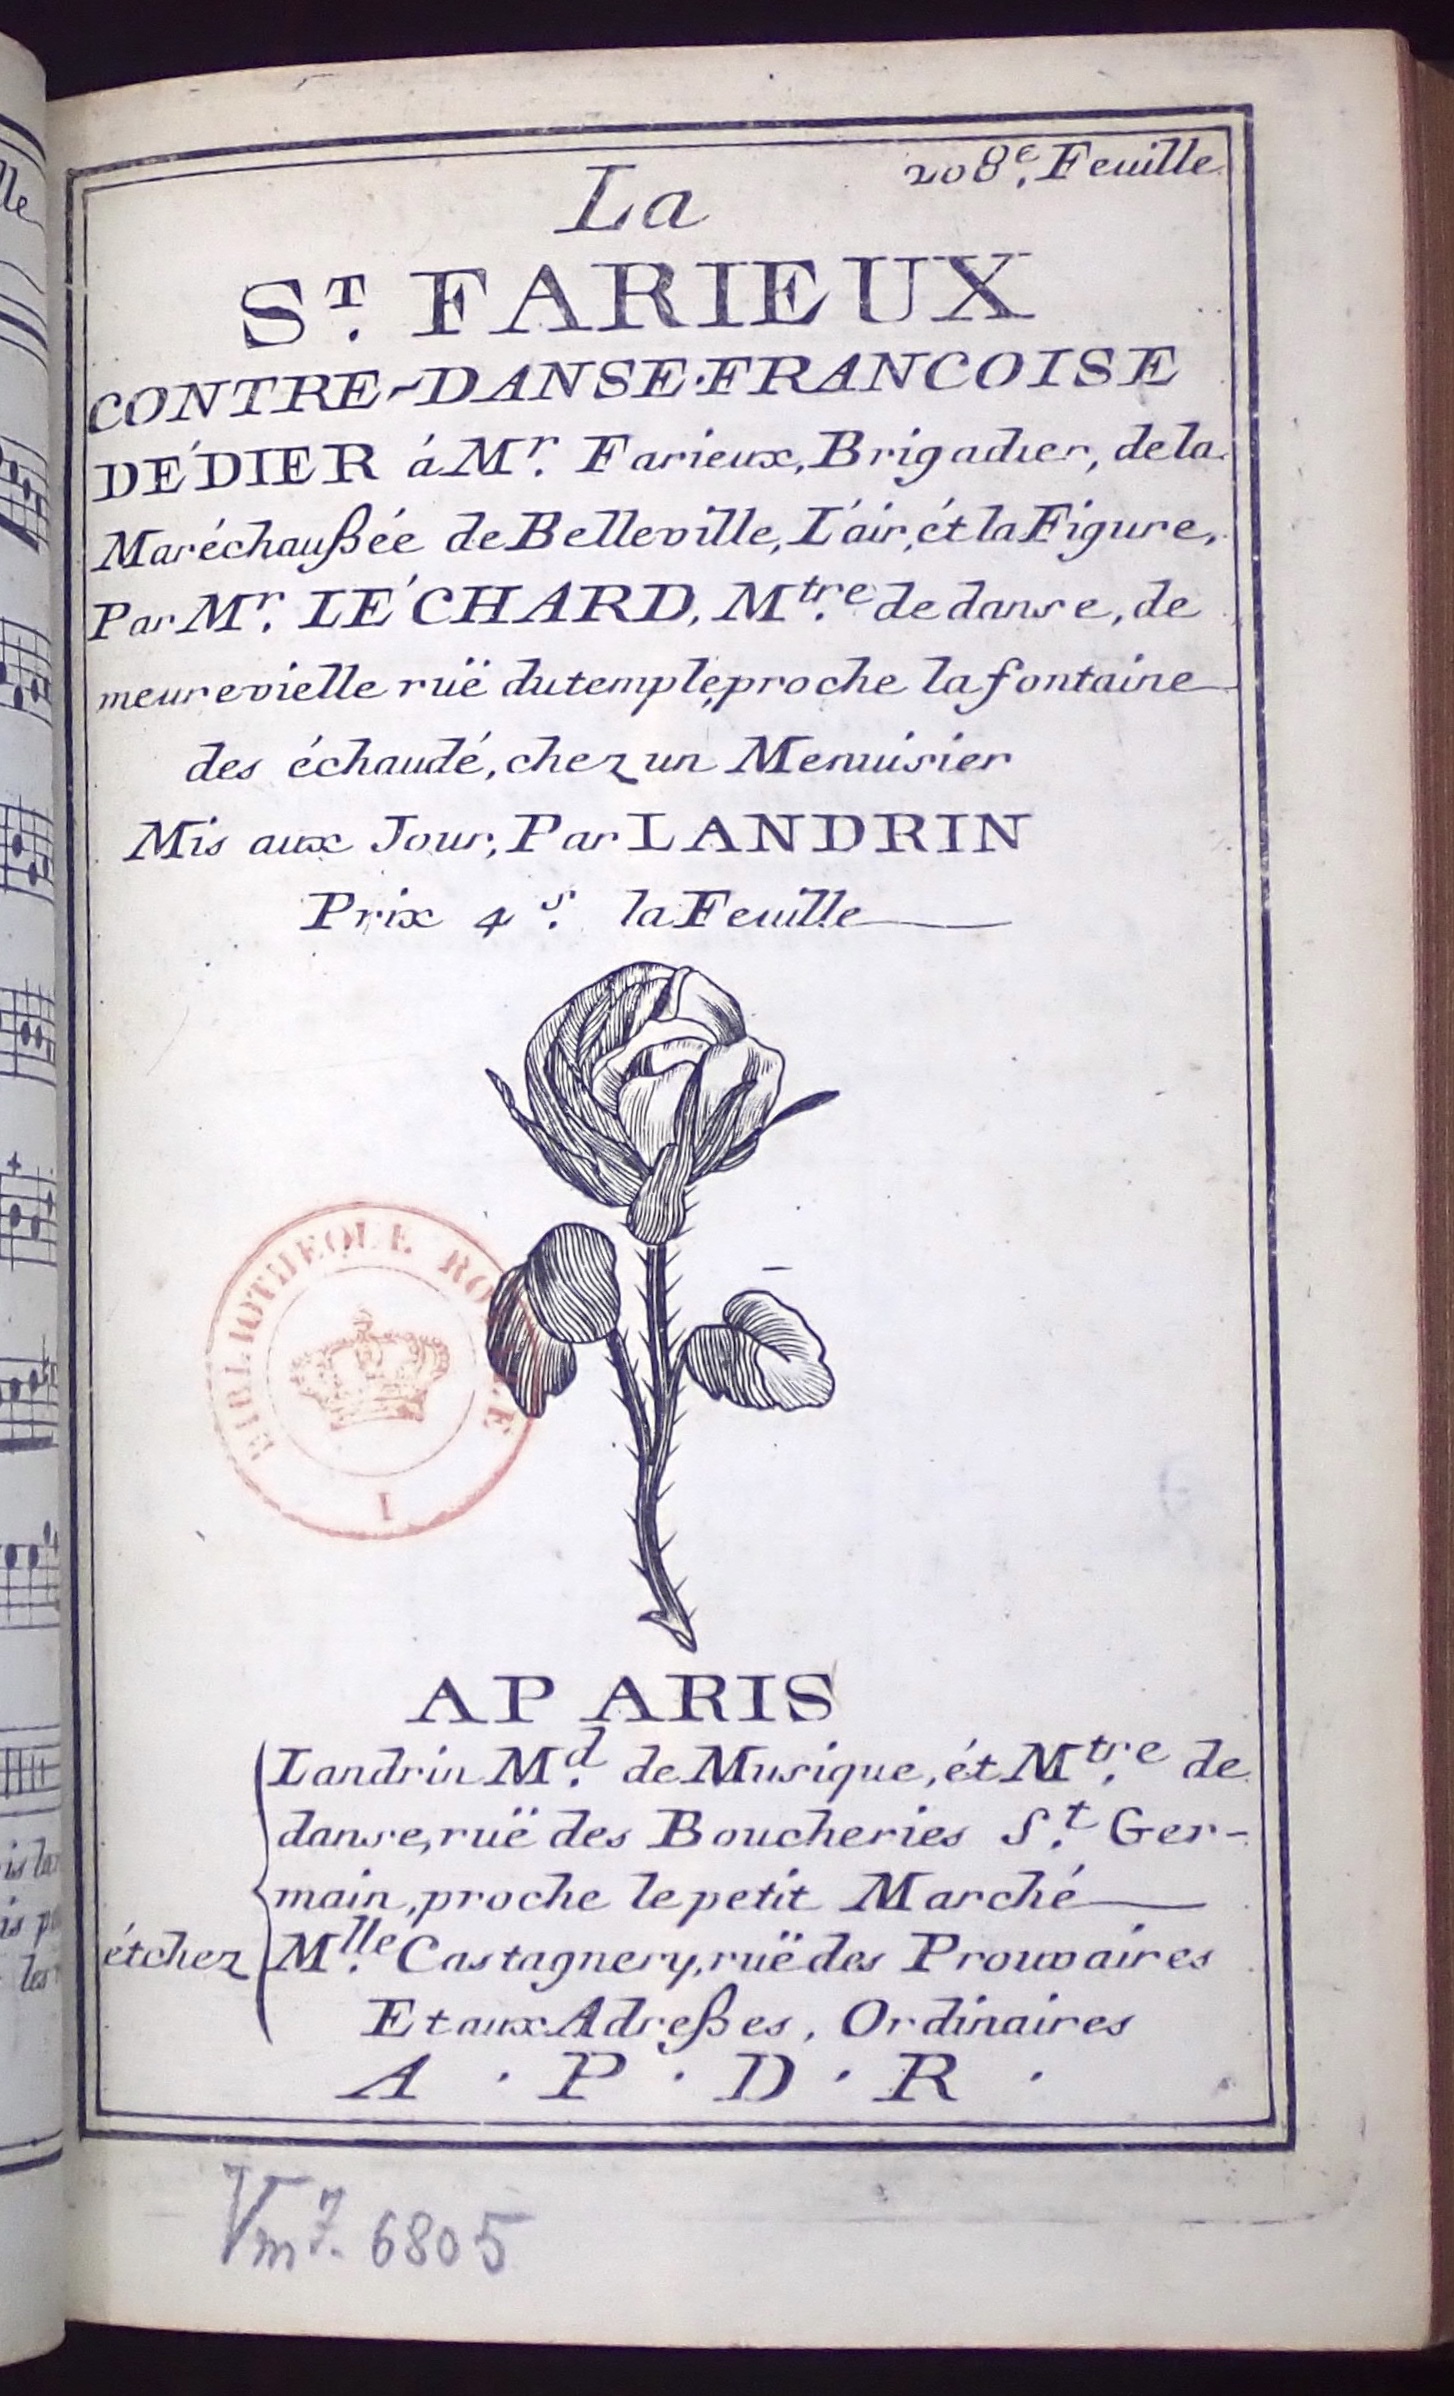 208e. Feuille
La
ST. FARIEUX
CONTRE-DANSE·FRANCOISE
DÉDIER á Mr. Farieux, Brigadier, de la
Maréchaußée de Belleville, L'air, ét la Figure,
Par Mr. LÉCHARD, Mtre. de danse, de
meure vielle ruë du temple, proche la fontaine
des échaudé, chez un Menuisier
Mis aux Jour, Par LANDRIN
Prix 4 s. la Feuille
BIBLIOTHEQUE ROYALE
1
A PARIS
Landrin Md. de Musique, ét Mtre. de
danse, ruë des Boucheries St. Ger-
main, proche le petit Marché
ét chez Mlle. Castagnery, ruë des Prouvaires
Et aux Adreßes, Ordinaires
A · P · D · R ·
Vm7. 6805